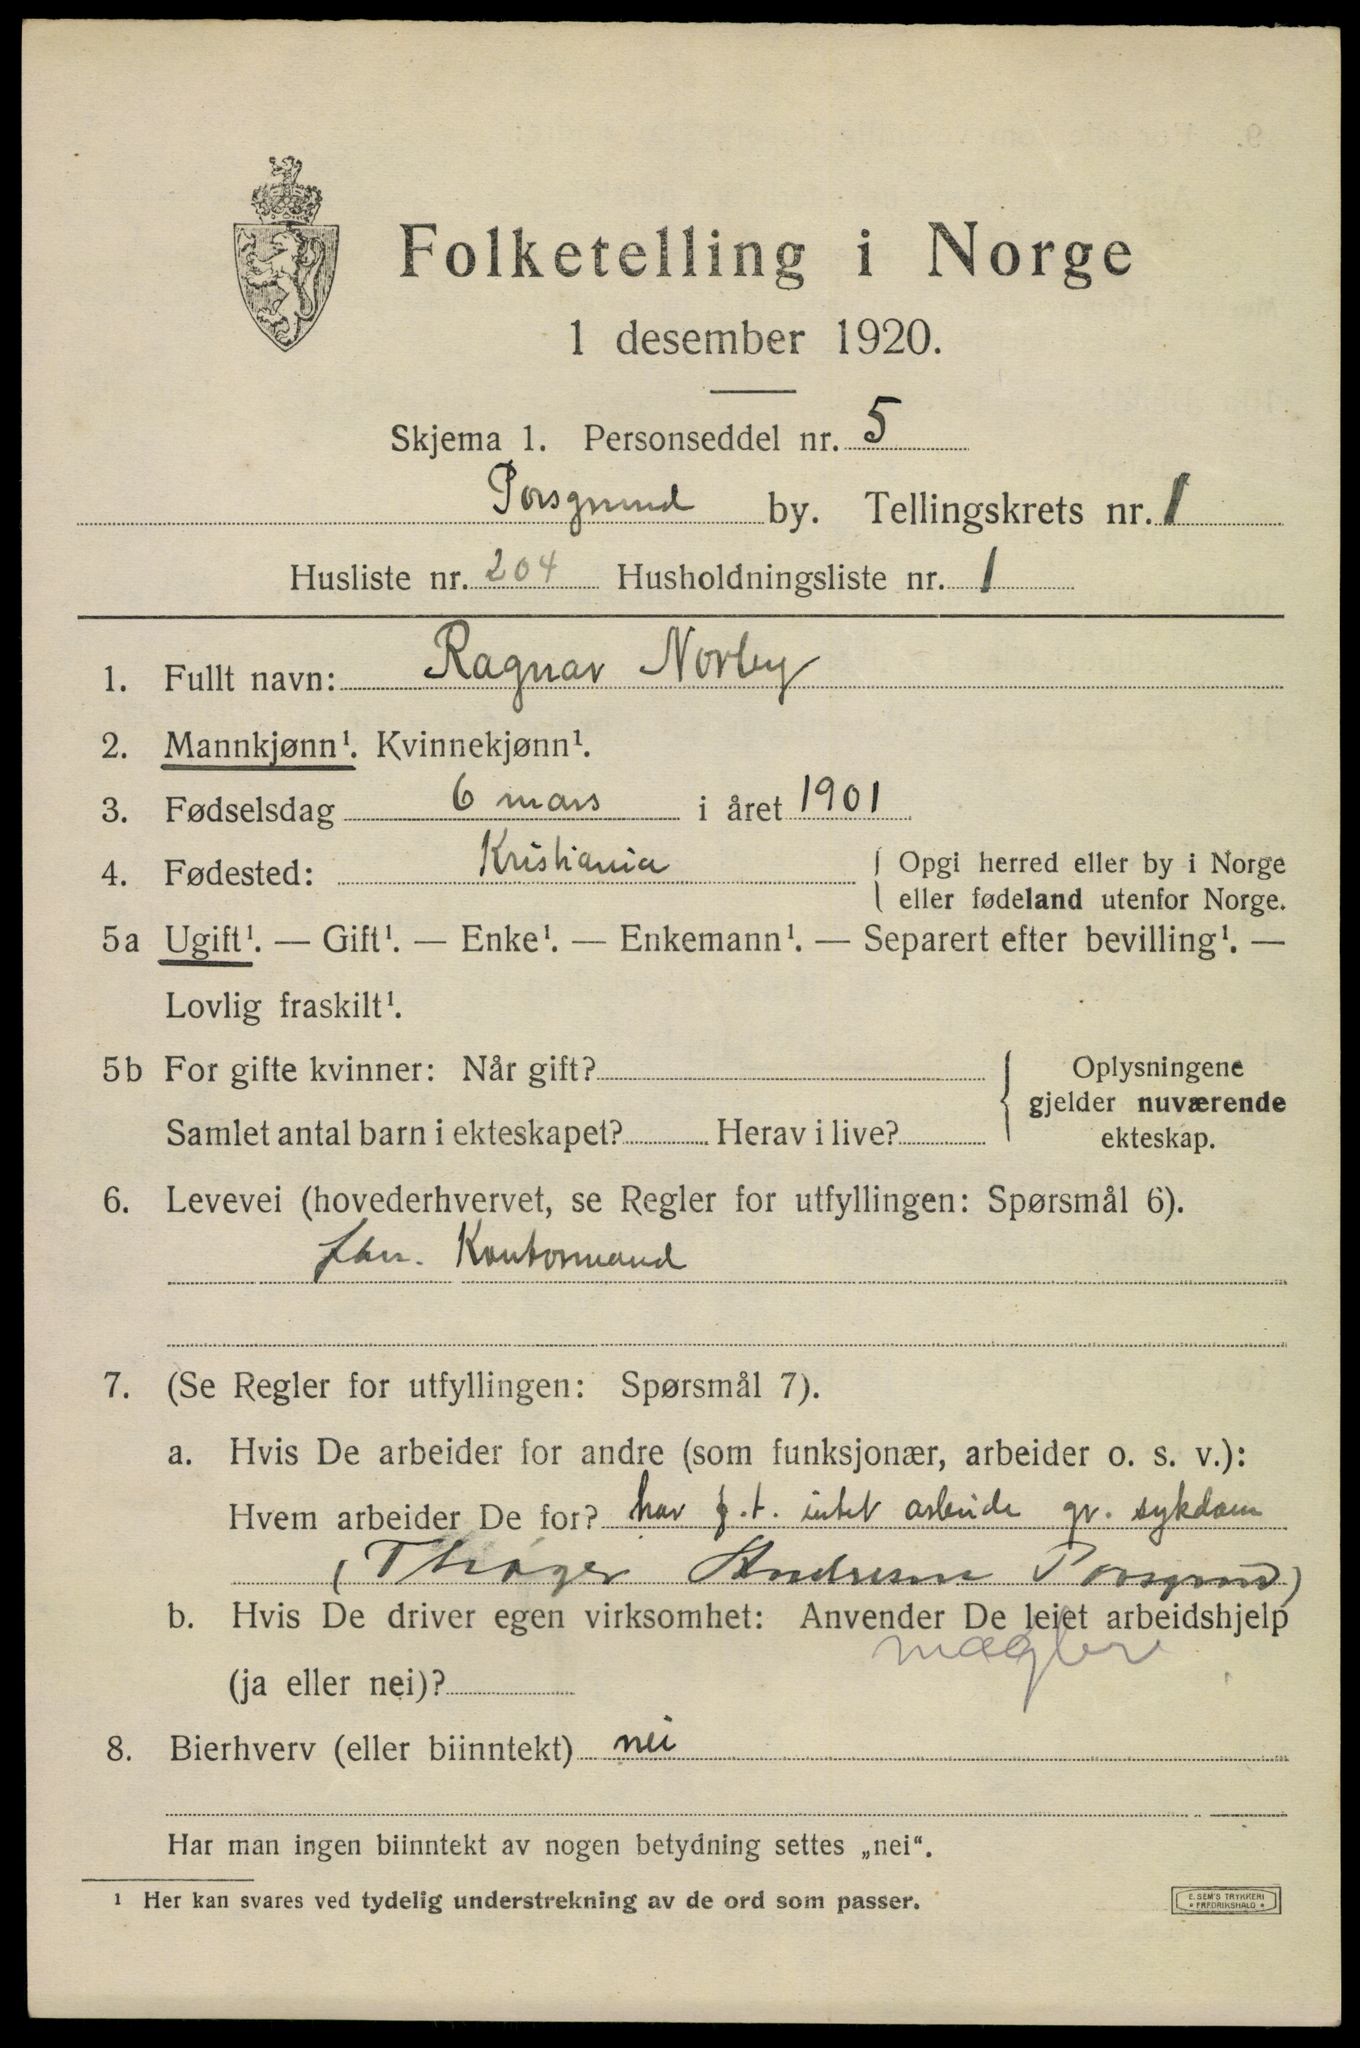 Folketelling i Norge
1 desember 1920.
Skjema 1. Personseddel nr. 5
Porsgrund by. Tellingskrets nr. 1
Husliste nr. 204 Husholdningsliste nr. 1
1. Fullt navn: Ragnar Norby
2. Mannkjønn¹. Kvinnekjønn¹.
3. Fødselsdag 6 mars i året 1901
4. Fødested: Kristiania { Opgi herred eller by i Norge
eller fødeland utenfor Norge.
5a Ugift¹. — Gift¹. — Enke¹. — Enkemann¹. — Separert efter bevilling¹. —
Lovlig fraskilt¹.
5b For gifte kvinner: Når gift?
Samlet antal barn i ekteskapet? Herav i live?
{ Oplysningene
gjelder nuværende
ekteskap.
6. Levevei (hovederhvervet, se Regler for utfyllingen: Spørsmål 6).
Kontormand
7. (Se Regler for utfyllingen: Spørsmål 7).
a. Hvis De arbeider for andre (som funksjonær, arbeider o. s. v.):
Hvem arbeider De for? har f.t. intet arbeide gr. sykdom
(Thøger Andresen Porsgrund)
b. Hvis De driver egen virksomhet: Anvender De leiet arbeidshjelp
mægler
(ja eller nei)?
8. Bierhverv (eller biinntekt) nei
Har man ingen biinntekt av nogen betydning settes „nei“.
¹ Her kan svares ved tydelig understrekning av de ord som passer.
E. SEM'S TRYKKERI
* FREDRIKSHALD *